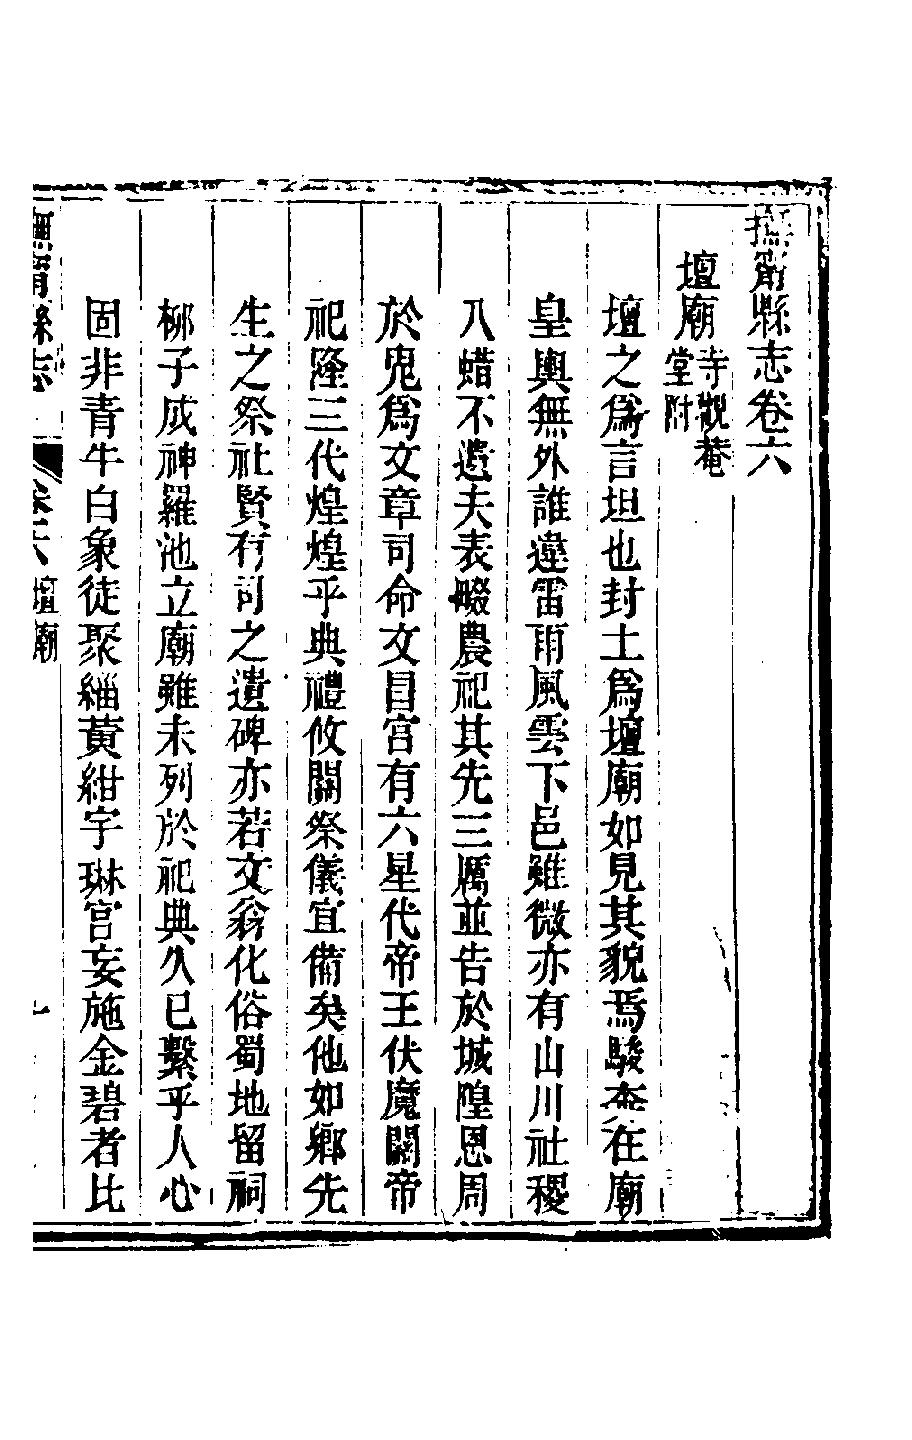 撫甯縣志卷六
壇廟 寺觀菴堂附
壇之爲言坦也封土爲壇廟如見其貌焉駿奔在廟
皇輿無外誰違雷雨風雲下邑雖微亦有山川社稷
八蜡不遺夫表畷農祀其先三厲並告於城隍恩周
於鬼爲文章司命文昌宮有六星代帝王伏魔關帝
祀隆三代煌煌乎典禮攸關祭儀宜備矣他如鄉先
生之祭社賢有司之遺碑亦若文翁化俗蜀地留祠
栁子成神羅池立廟雖未列於祀典久已繫乎人心
固非青牛白象徒聚緇黃紺宇琳宮妄施金碧者比
撫甯縣志 卷六 壇廟 一